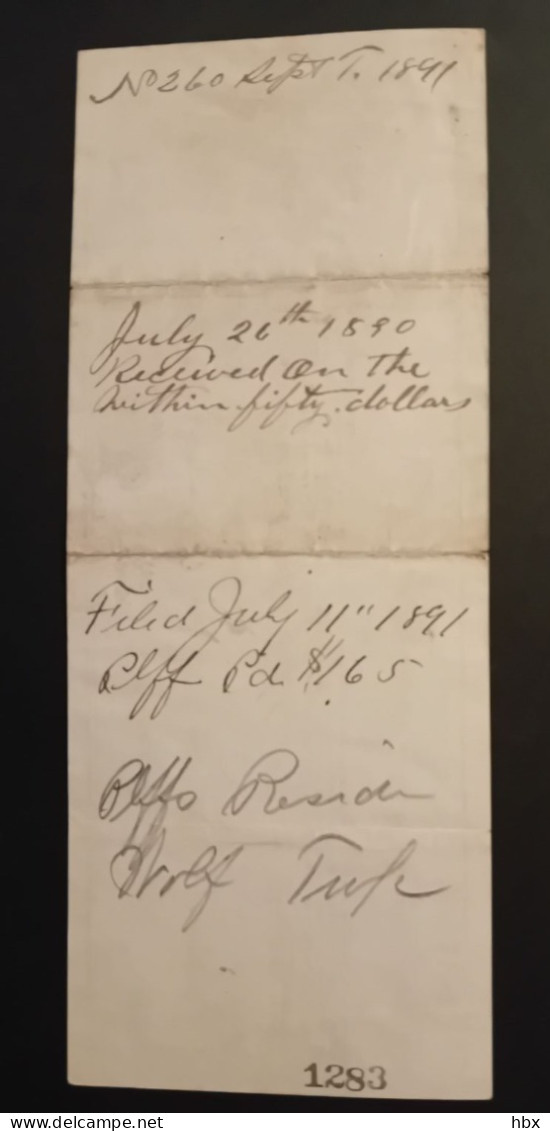 No 260 Sept T. 1891
July 26th 1890
Received on the
within fifty dollars
Filed July 11" 1891
Plff Pd $1.65
Plffs Reside
Wolf Twp
1283
delcampe.net
hbx